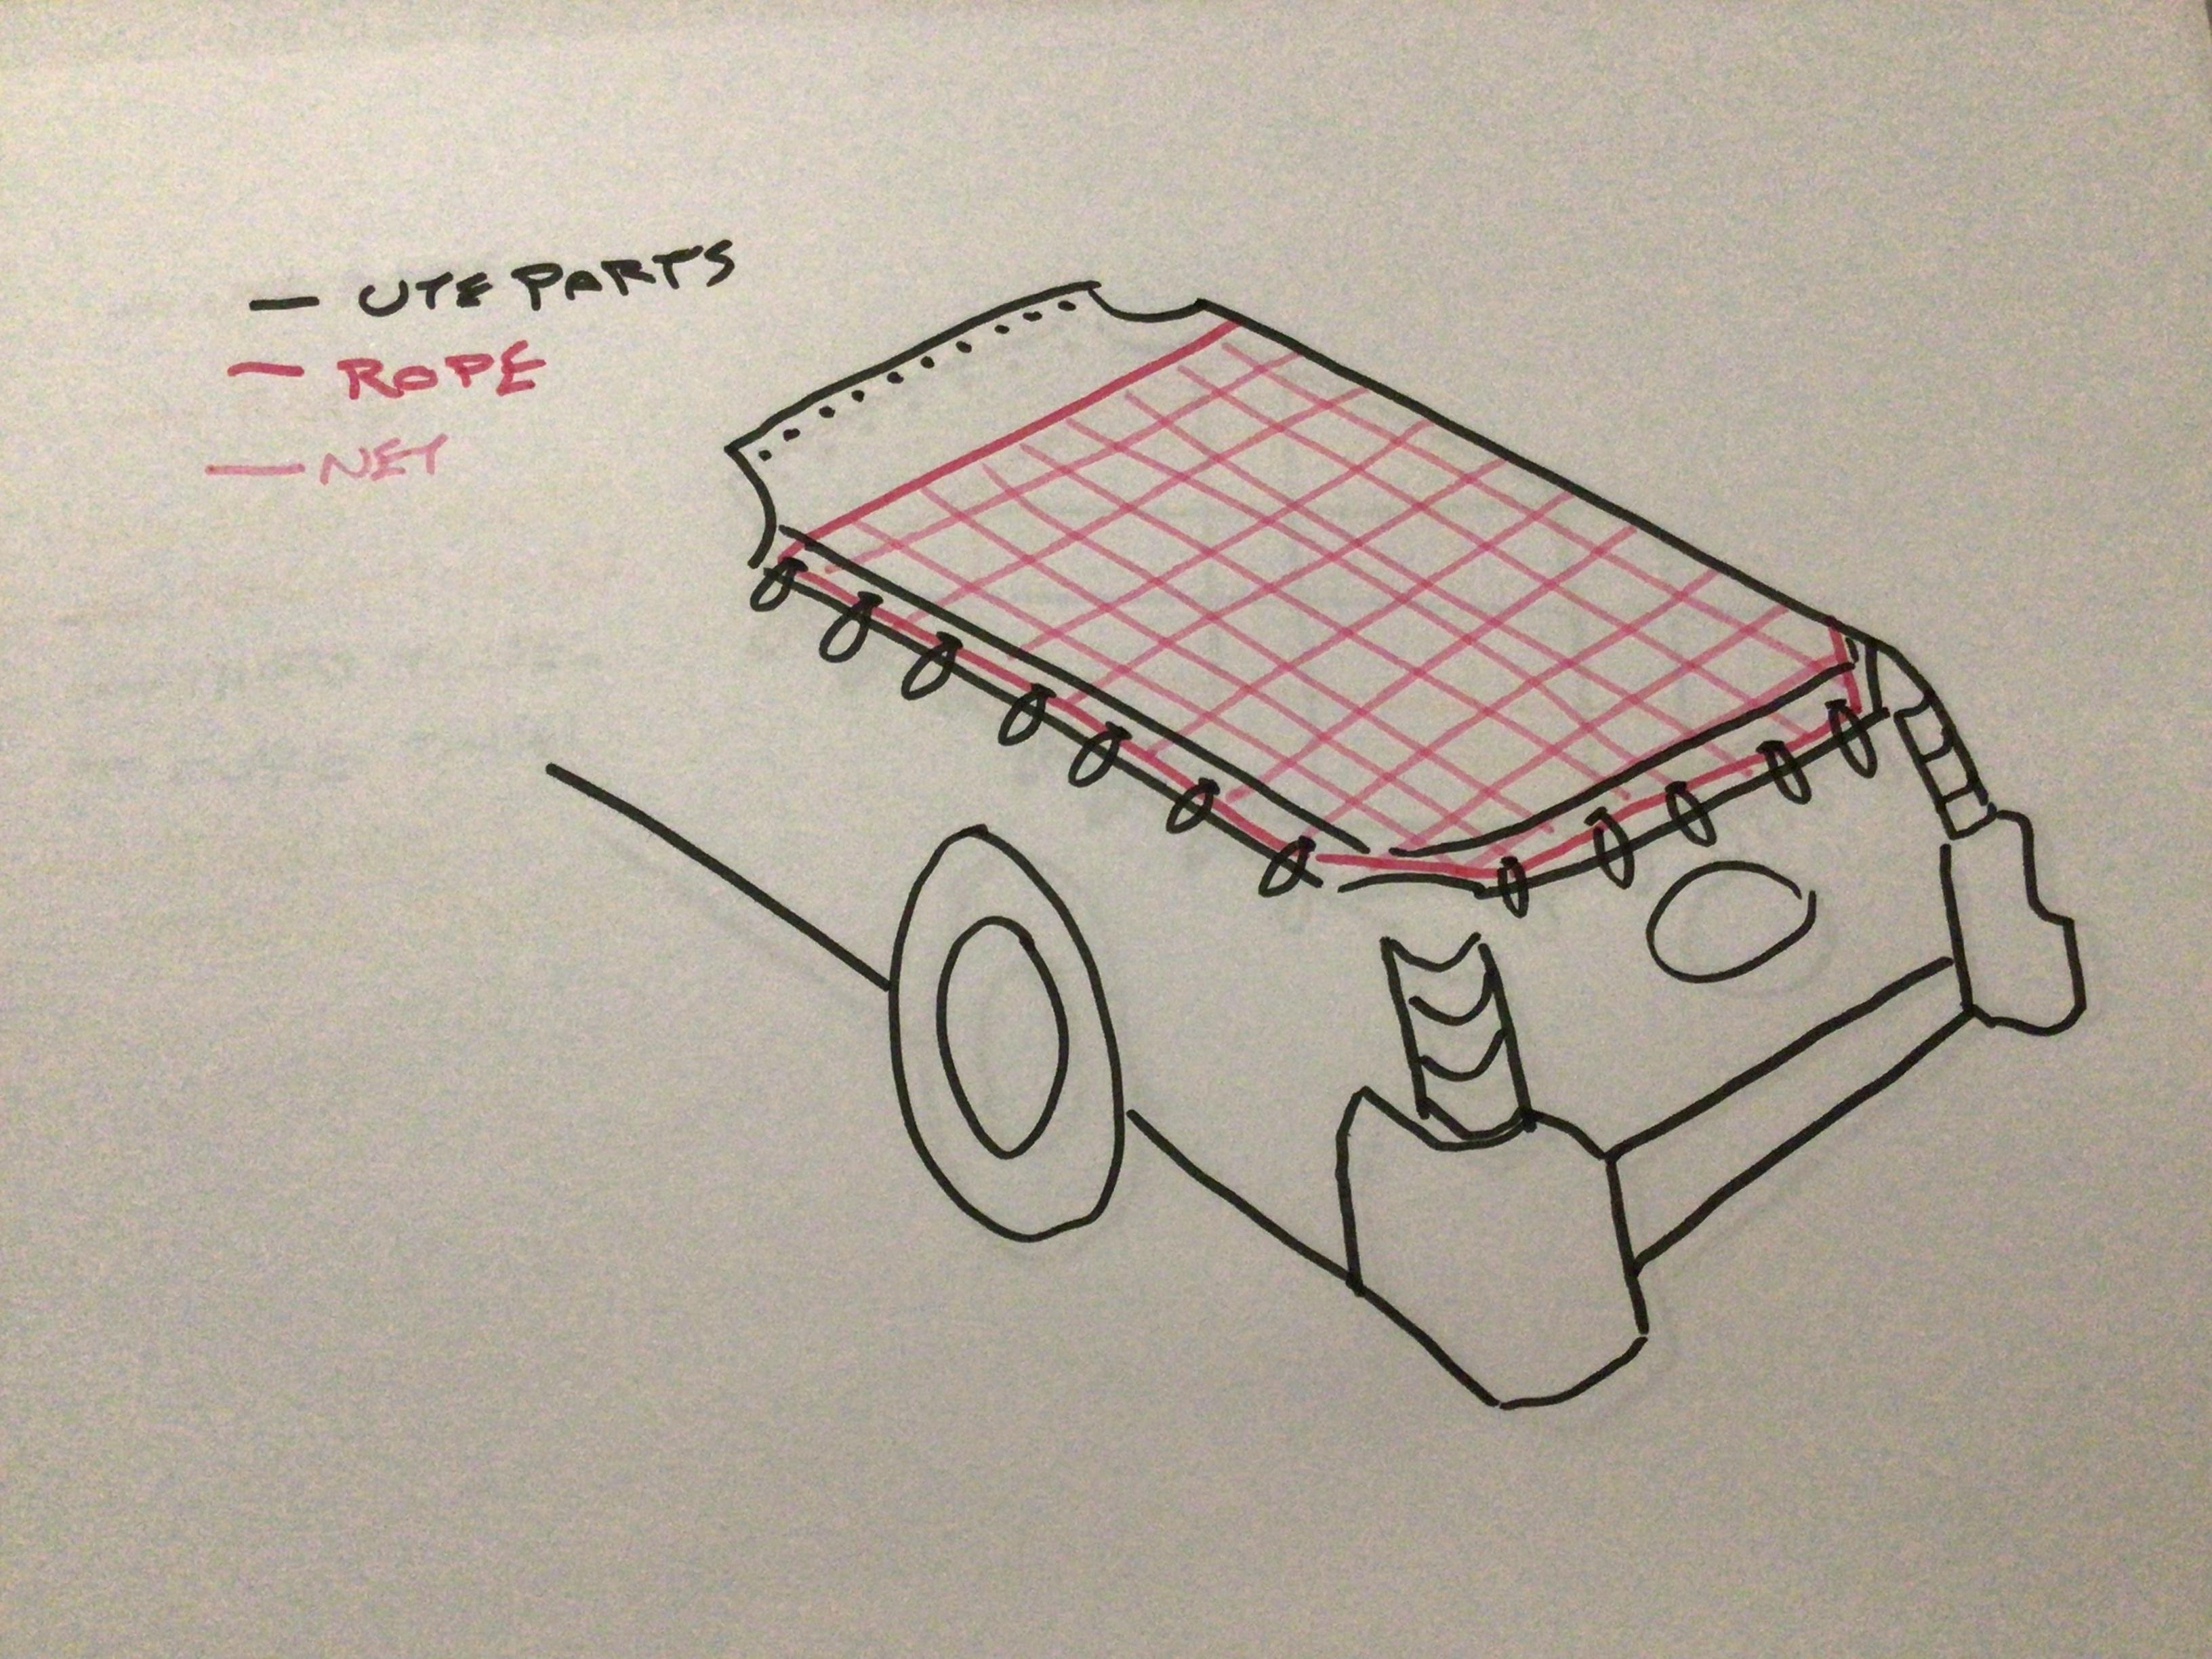 — UTE PARTS
— ROPE
— NET